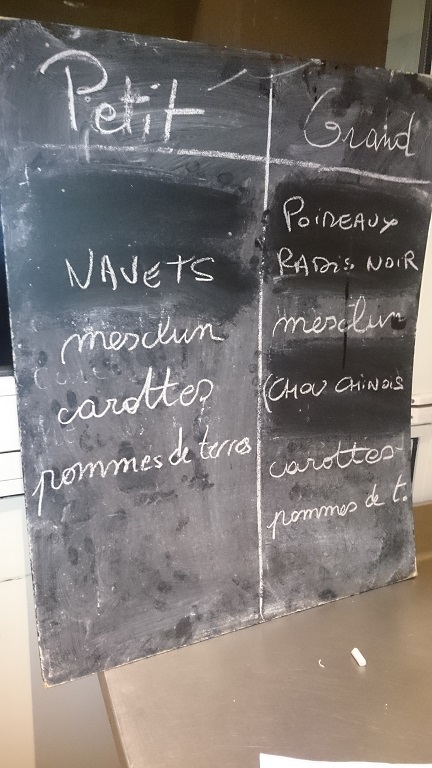 Petit
NAVETS
mesclun
carottes
pommes de terres
Grand
POIREAUX
RADIS NOIR
mesclun
(CHOU CHINOIS
carottes
pommes de t.